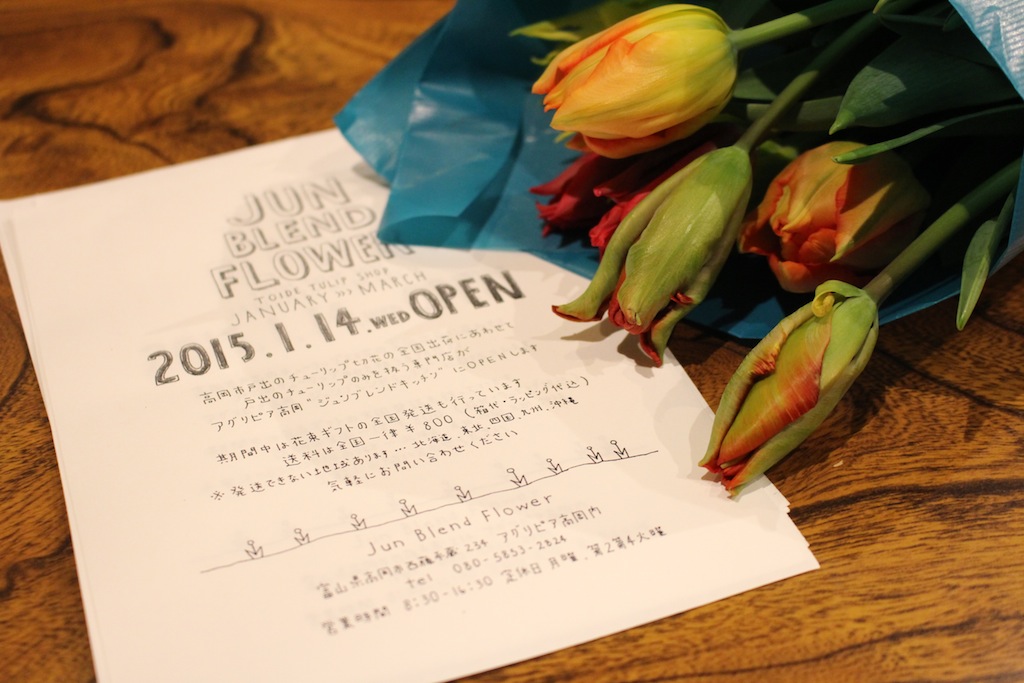 JUN
BLEND
FLOWER
TOIDE TULIP SHOP
JANUARY >>> MARCH
2015.1.14.WED OPEN
高岡市戸出のチューリップ花の全国出荷にあわせて
戸出のチューリップのみを扱う専門店が
アグリピア高岡"ジュンブレンドキッチン"にOPENします
期間中は花束ギフトの全国発送も行っています
送料は全国一律¥800(箱代・ラッピング代込)
※発送できない地域あります…北海道.東北.四国.九州.沖縄
気軽にお問い合わせください
Jun Blend Flower
富山県高岡市 234 アグリピア高岡内
tel 080-5853-2824
営業時間 8:30-16:30 定休日 月曜.第2第4火曜